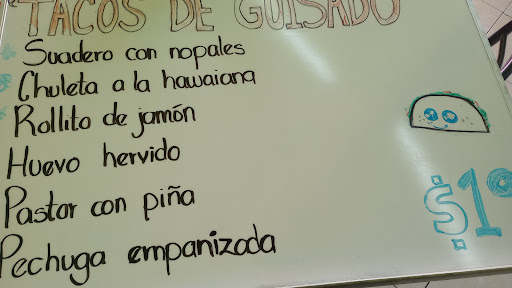 TACOS DE GUISADO
Suadero con nopales
Chuleta a la hawaiana
Rollito de jamón
Huevo hervido
Pastor con piña
Pechuga empanizada